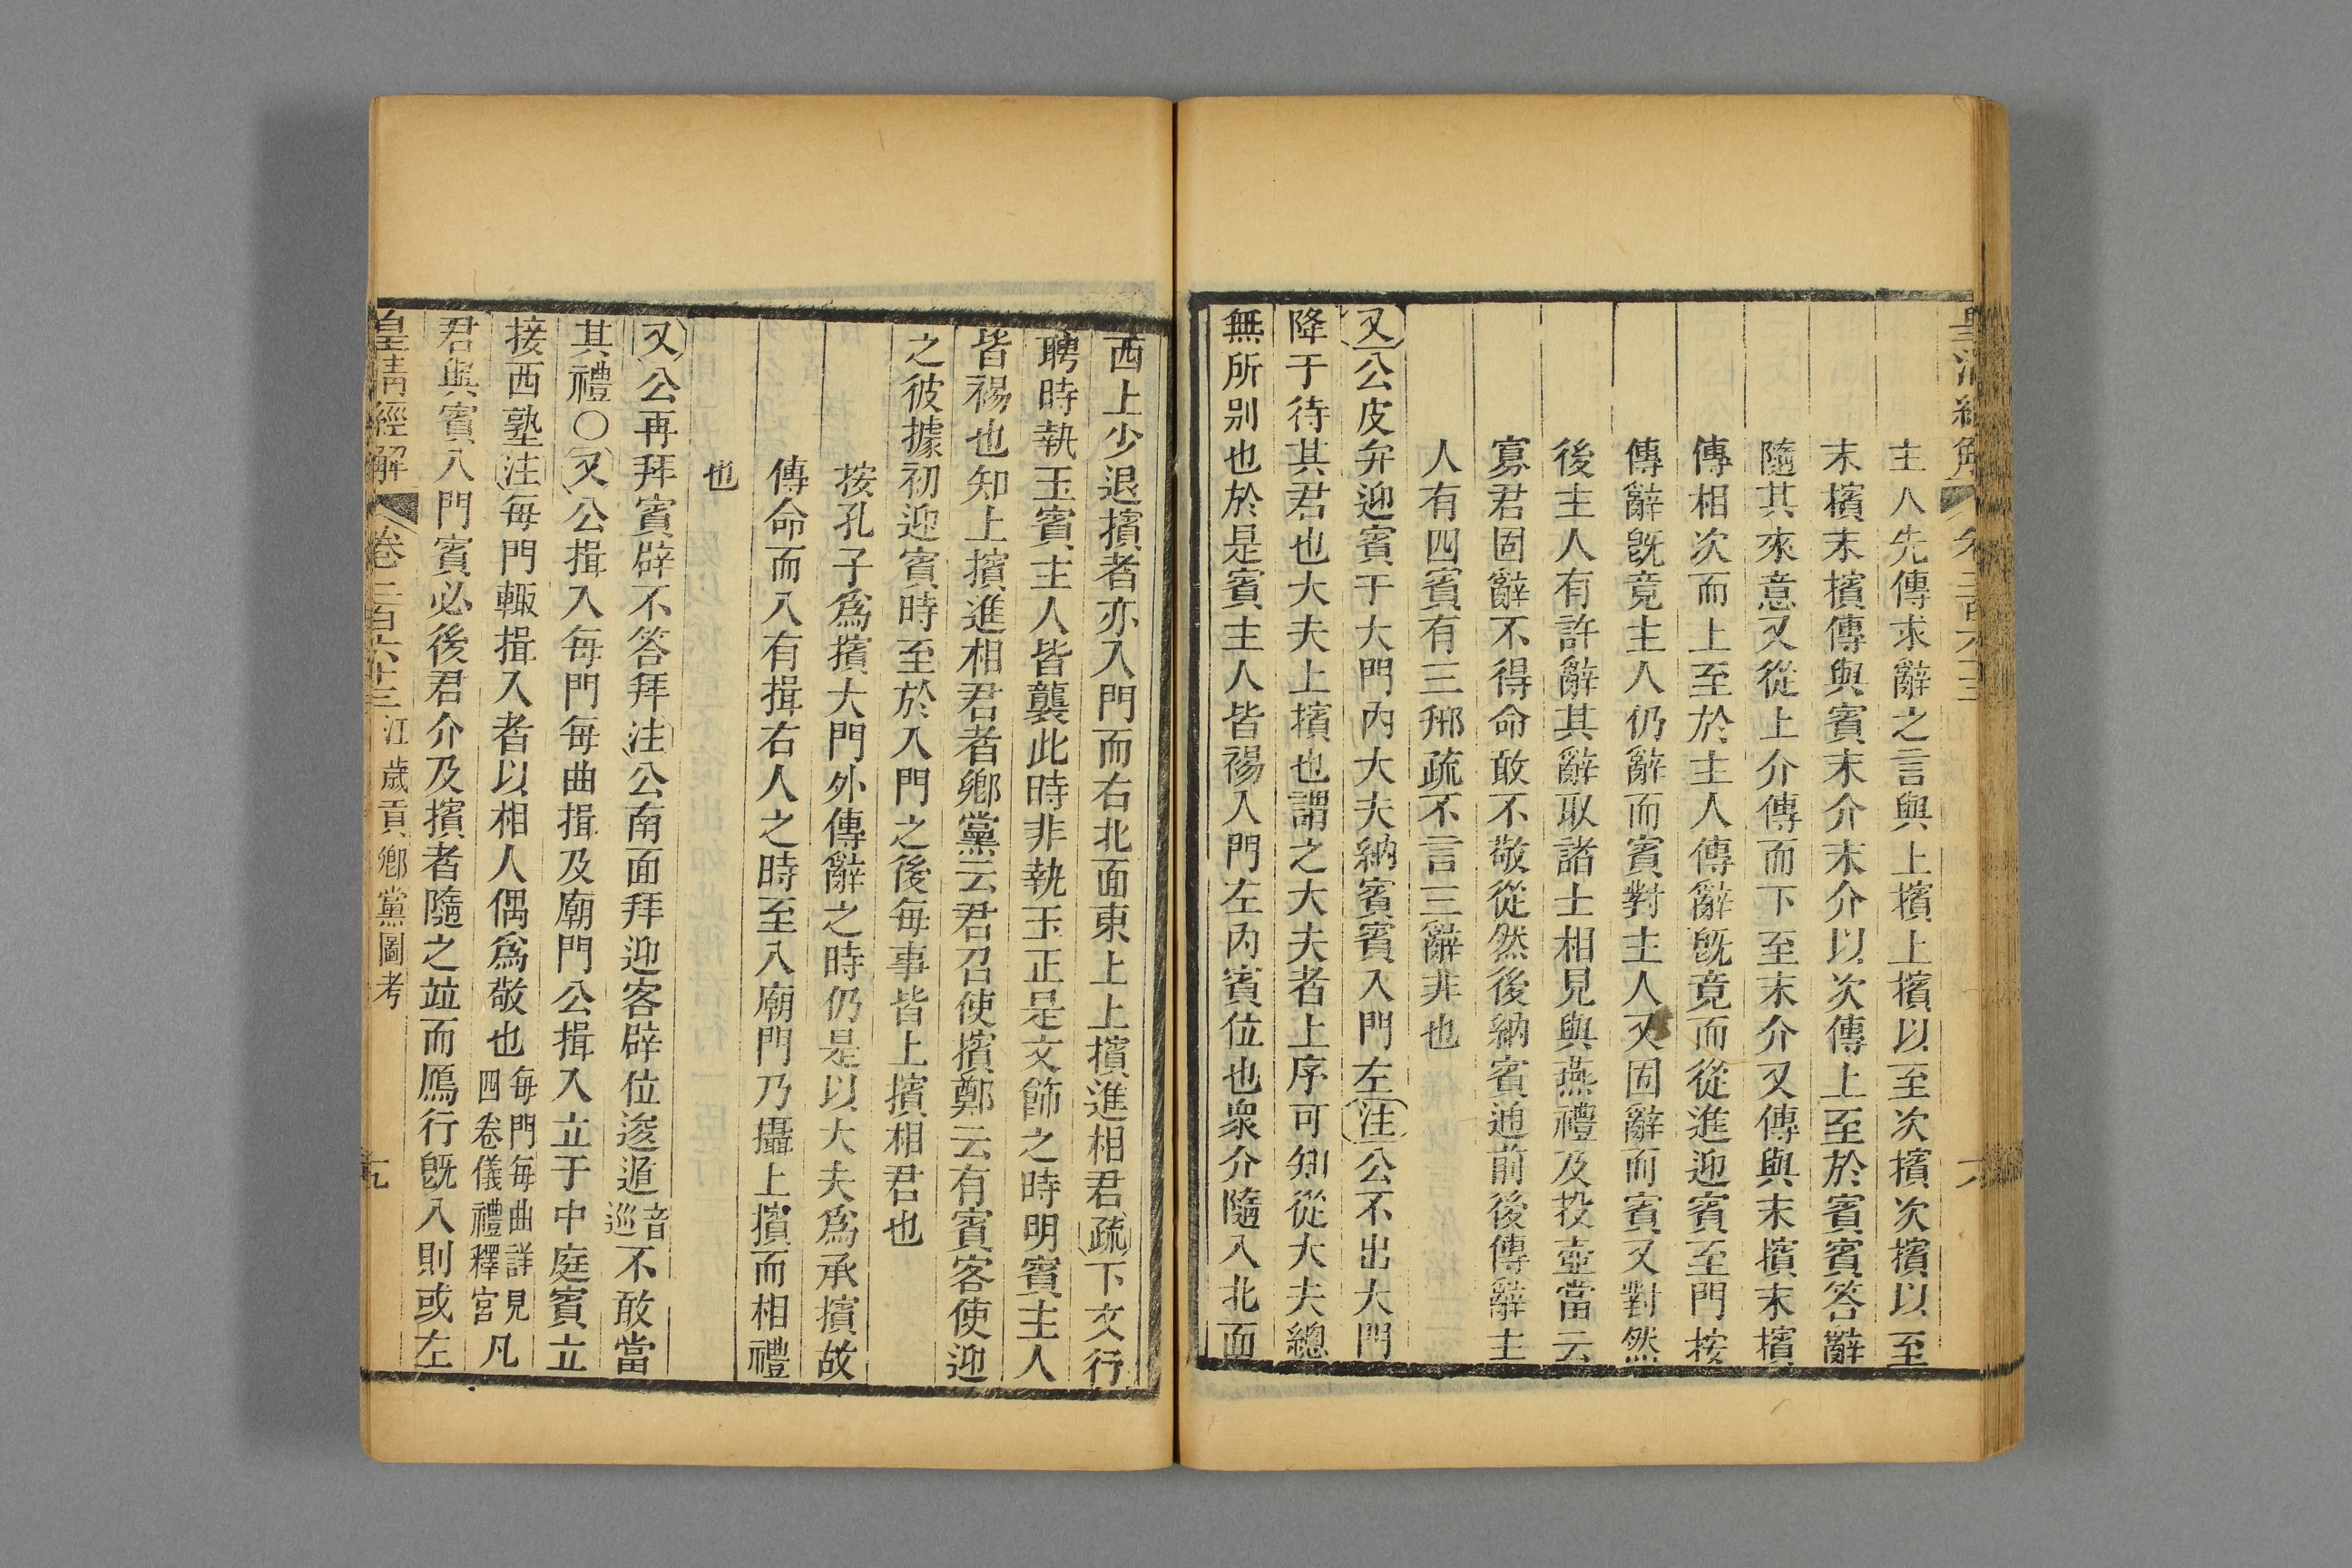 主人先傳求辭之言與上擯上擯以至次擯次擯以至
末擯末擯傳與賓末介末介以次傳上至於賓賓答辭
隨其來意又從上介傳而下至末介又傳與末擯末擯
傳相次而上至於主人傳辭旣竟而從進迎賓至門按
傳辭旣竟主人仍辭而賓對主人又固辭而賓又對然
後主人有許辭其辭取諸士相見與燕禮及投壺當云
寡君固辭不得命敢不敬從然後納賓逋前後傳辭主
人有四賓有三邢疏不言三辭非也
又公皮弁迎賓于大門內大夫納賓賓入門左注公不出大門
降于待其君也大夫上擯也謂之大夫者上序可知從大夫總
無所別也於是賓主人皆裼入門左內賓位也衆介隨入北面
西上少退擯者亦入門而右北面東上上擯進相君疏下文行
聘時執玉賓主人皆襲此時非執玉正是文飾之時明賓主人
皆裼也知上擯進相君者鄉黨云君召使擯鄭云有賓客使迎
之彼據初迎賓時至於入門之後每事皆上擯相君也
按孔子爲擯大門外傳辭之時仍是以大夫爲承擯故
傳命而入有揖右人之時至入廟門乃攝上擯而相禮
也
又公再拜賓辟不答拜注公南面拜迎客辟位逡遁音巡不敢當
其禮○又公揖入每門每曲揖及廟門公揖入立于中庭賓立
接西塾注每門輙揖入者以相人偶爲敬也每門每曲詳見四卷儀禮釋宮凡
君與賓入門賓必後君介及擯者隨之竝而鴈行旣入則或左
皇清經解 卷二百六十三 江歲貢鄉黨圖考 十九